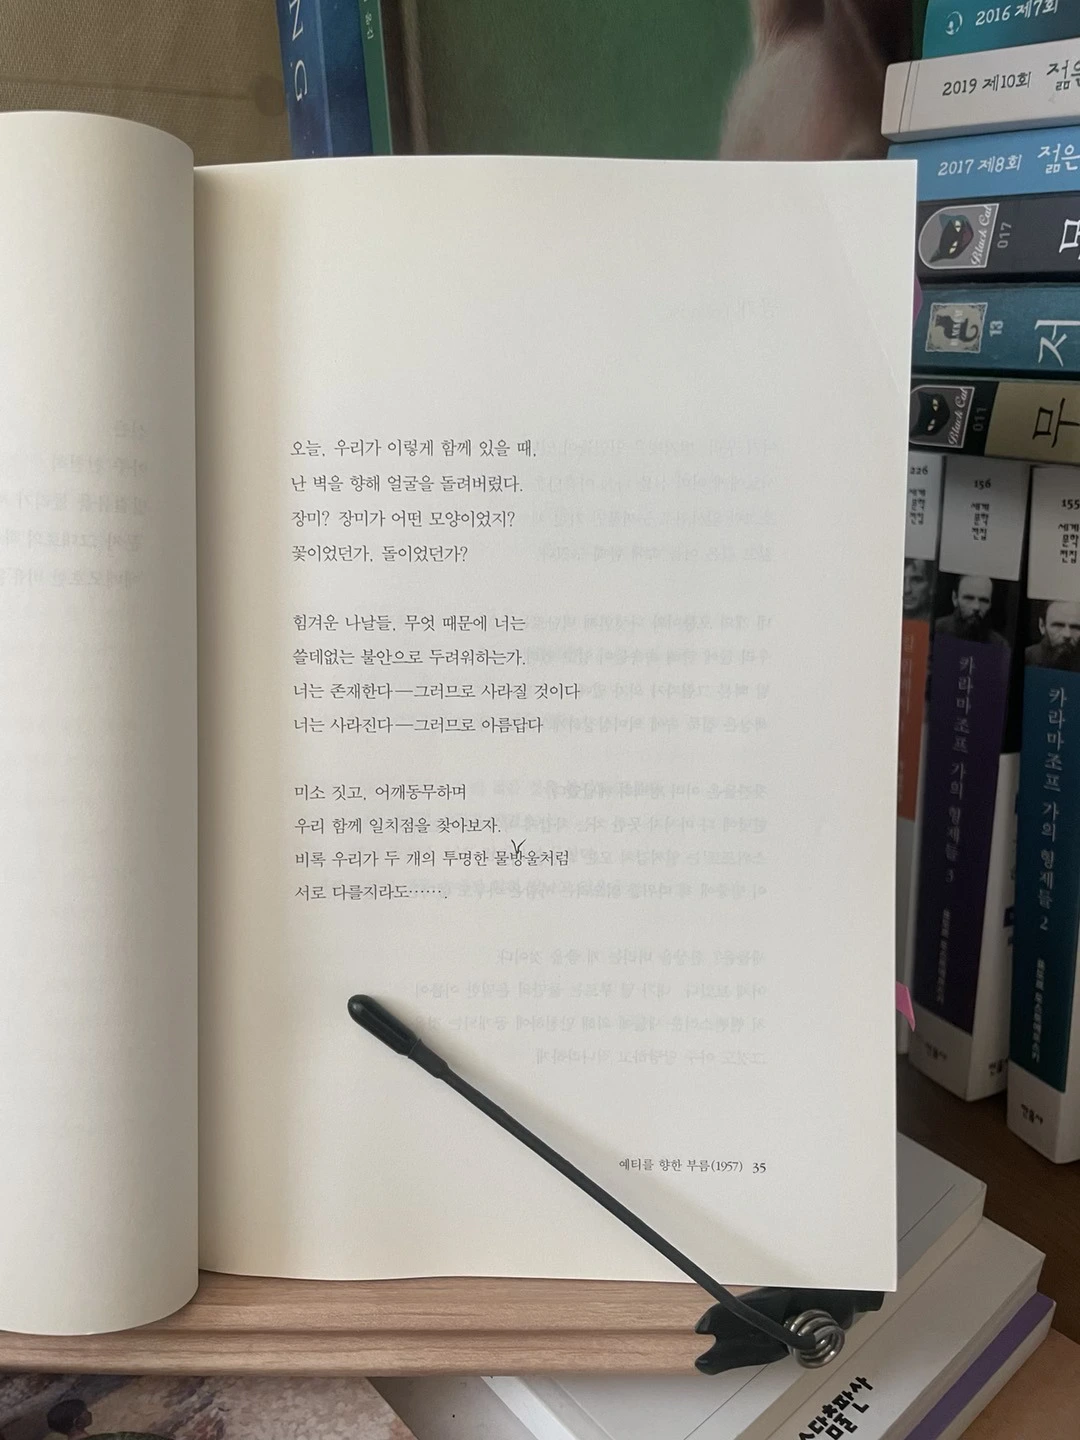 N.G
2016 제7회
2019 제10회 젊은
2017 제8회 젊은
Black Cat
017
13
저
Black Cat
011
무
226
세계
문학
전집
156
세계
문학
전집
155
세계
문학
전집
카라마조프 가의 형제들 3
표도르 도스토예프스키
민음사
카라마조프 가의 형제들 2
표도르 도스토예프스키
민음사
오늘, 우리가 이렇게 함께 있을 때,
난 벽을 향해 얼굴을 돌려버렸다.
장미? 장미가 어떤 모양이었지?
꽃이었던가, 돌이었던가?
힘겨운 나날들, 무엇 때문에 너는
쓸데없는 불안으로 두려워하는가.
너는 존재한다—그러므로 사라질 것이다
너는 사라진다—그러므로 아름답다
미소 짓고, 어깨동무하며
우리 함께 일치점을 찾아보자.
비록 우리가 두 개의 투명한 물방울처럼
서로 다를지라도…….
예티를 향한 부름(1957) 35
소담출판사